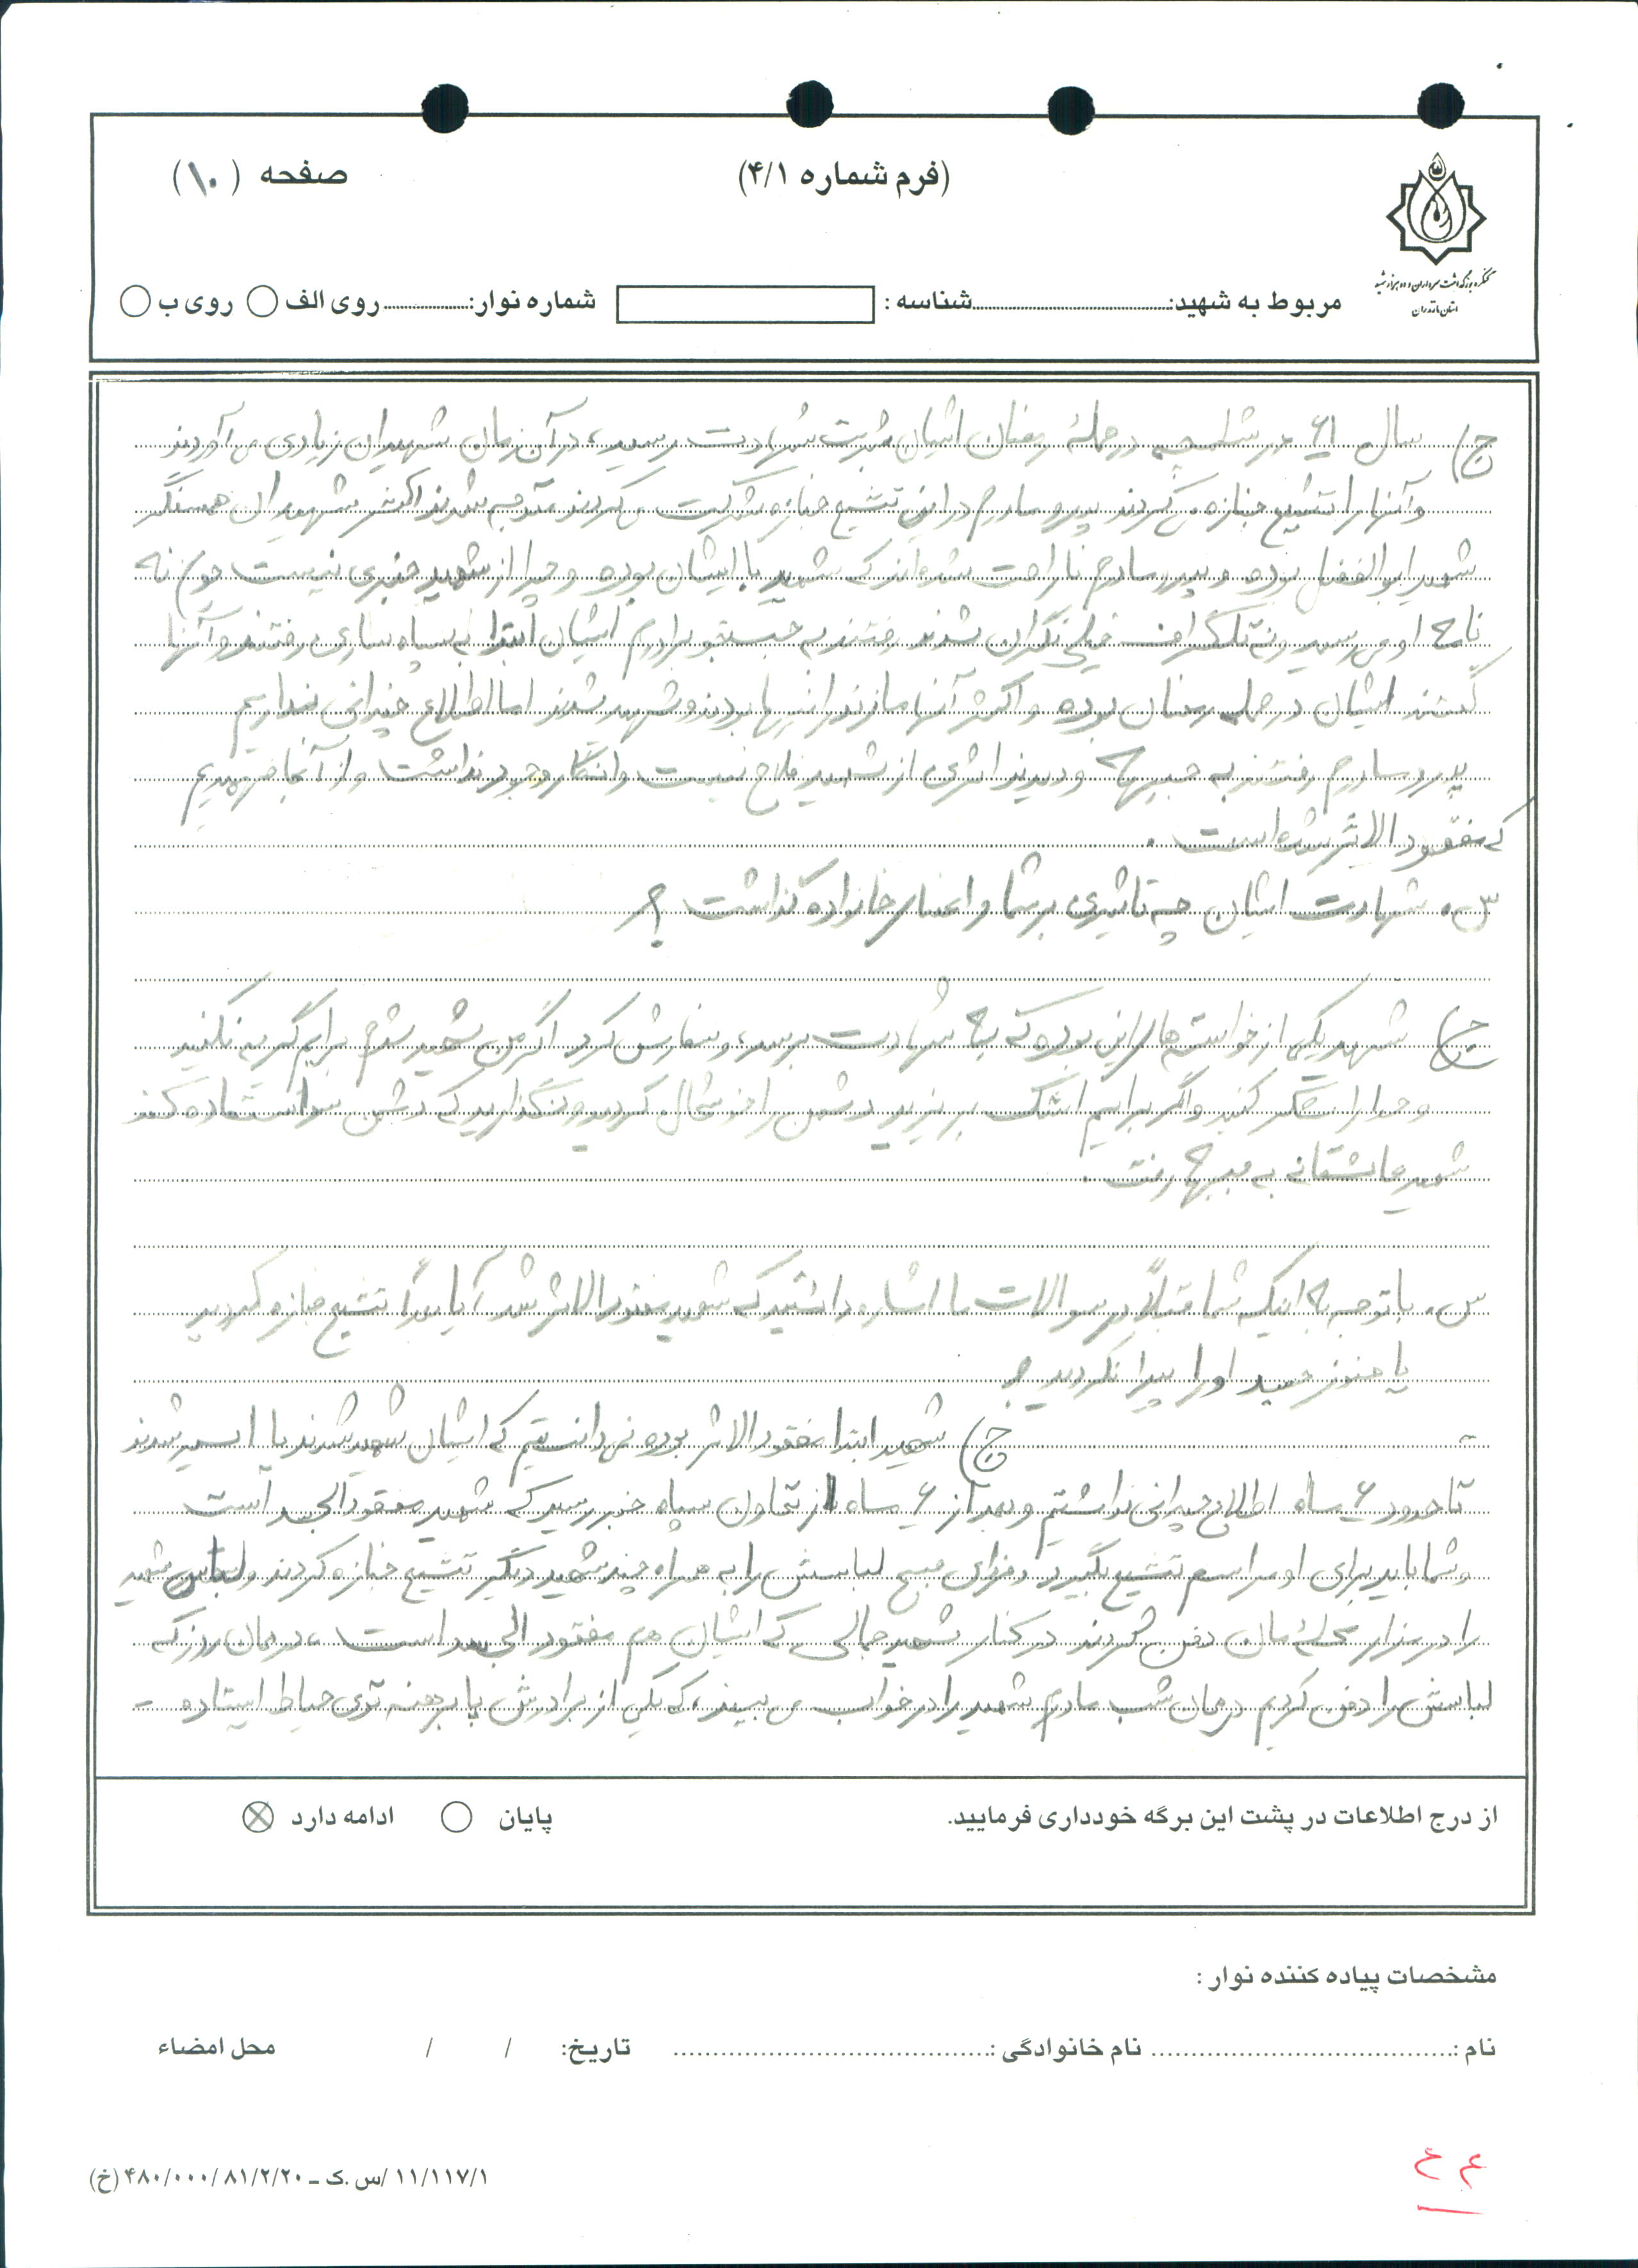 (فرم شماره ۴/۱)
صفحه (۱۰)
کنگره بزرگداشت سرداران و ده هزار شهید
استان مازندران
مربوط به شهید: شناسه : شماره نوار: روی الف روی ب
ج) سال ۶۱ در شلمچه در حملهٔ رمضان ایشان شربت شهادت رسید، در آن زمان شهیدان زیادی می آوردند
و آنها را تشییع جنازه می کردند پدر و مادرم در این تشییع جنازه شرکت می کردند متوجه شدند اکثر شهیدان همسنگر
شهید ابوالفضل بوده و پدر و مادرم ناراحت شده اند که شهید با ایشان بوده و چرا از شهید خبری نیست چون نه
نامه او می رسید و نه تلگراف خیلی نگران شدند رفتند به جستجو برادرم ایشان ابتدا به سپاه ساری رفتند و آنها
گفتند ایشان در حمله رمضان بوده و اکثر آنها مازندرانیها بودند و شهید شدند اما اطلاع چندانی نداریم
پدر و مادرم رفتند به جبهه و دیدند اثری از شهید فلاح نیست و انگار وجود نداشت و از آنجا فهمیدیم
که مفقود الاثر شده است .
س. شهادت ایشان چه تاثیری بر شما و اعضاء خانواده گذاشت ؟
ج) شهید یکی از خواسته هایش این بوده که به شهادت برسد، و سفارش کرد اگر من شهید شدم برایم گریه نکنید
و خدا را شکر کنید و اگر برایم اشک بریزید دشمن را خوشحال کردید و نگذارید که دشمن سوءاستفاده کند
شهید عاشقانه به جبهه رفت .
س. با توجه به اینکه شما قبلاً در سوالات ما اشاره داشتید که شهید مفقود الاثر شد، آیا بعداً تشییع جنازه کردید
یا هنوز جسد او را پیدا نکردید ؟
ج) شهید ابتدا مفقود الاثر بوده نمی دانستیم که ایشان شهید شدند یا اسیر شدند
تا حدود ۶ ماه اطلاع چندانی نداشتیم و بعد از ۶ ماه از تعاون سپاه خبر رسید که شهید مفقود الجسد است
و شما باید برای او مراسم تشییع بگیرید و فردای صبح لباسش را به همراه چند شهید دیگر تشییع جنازه کردند و لباس شهید
را در مزار محلهٔ مان دفن کردند در کنار شهید جمالی که ایشان هم مفقود الجسد است ، در همان روز که
لباسش را دفن کردیم در همان شب مادرم شهید را در خواب می بیند، که یکی از برادرش پا برهنه توی حیاط ایستاده -
از درج اطلاعات در پشت این برگه خودداری فرمایید.
پایان ادامه دارد
مشخصات پیاده کننده نوار :
نام : نام خانوادگی : تاریخ: / / محل امضاء
۱۱/۱۱۷/۱ /س .ک ـ ۸۱/۲/۲۰ /۴۸۰/۰۰۰ (خ)